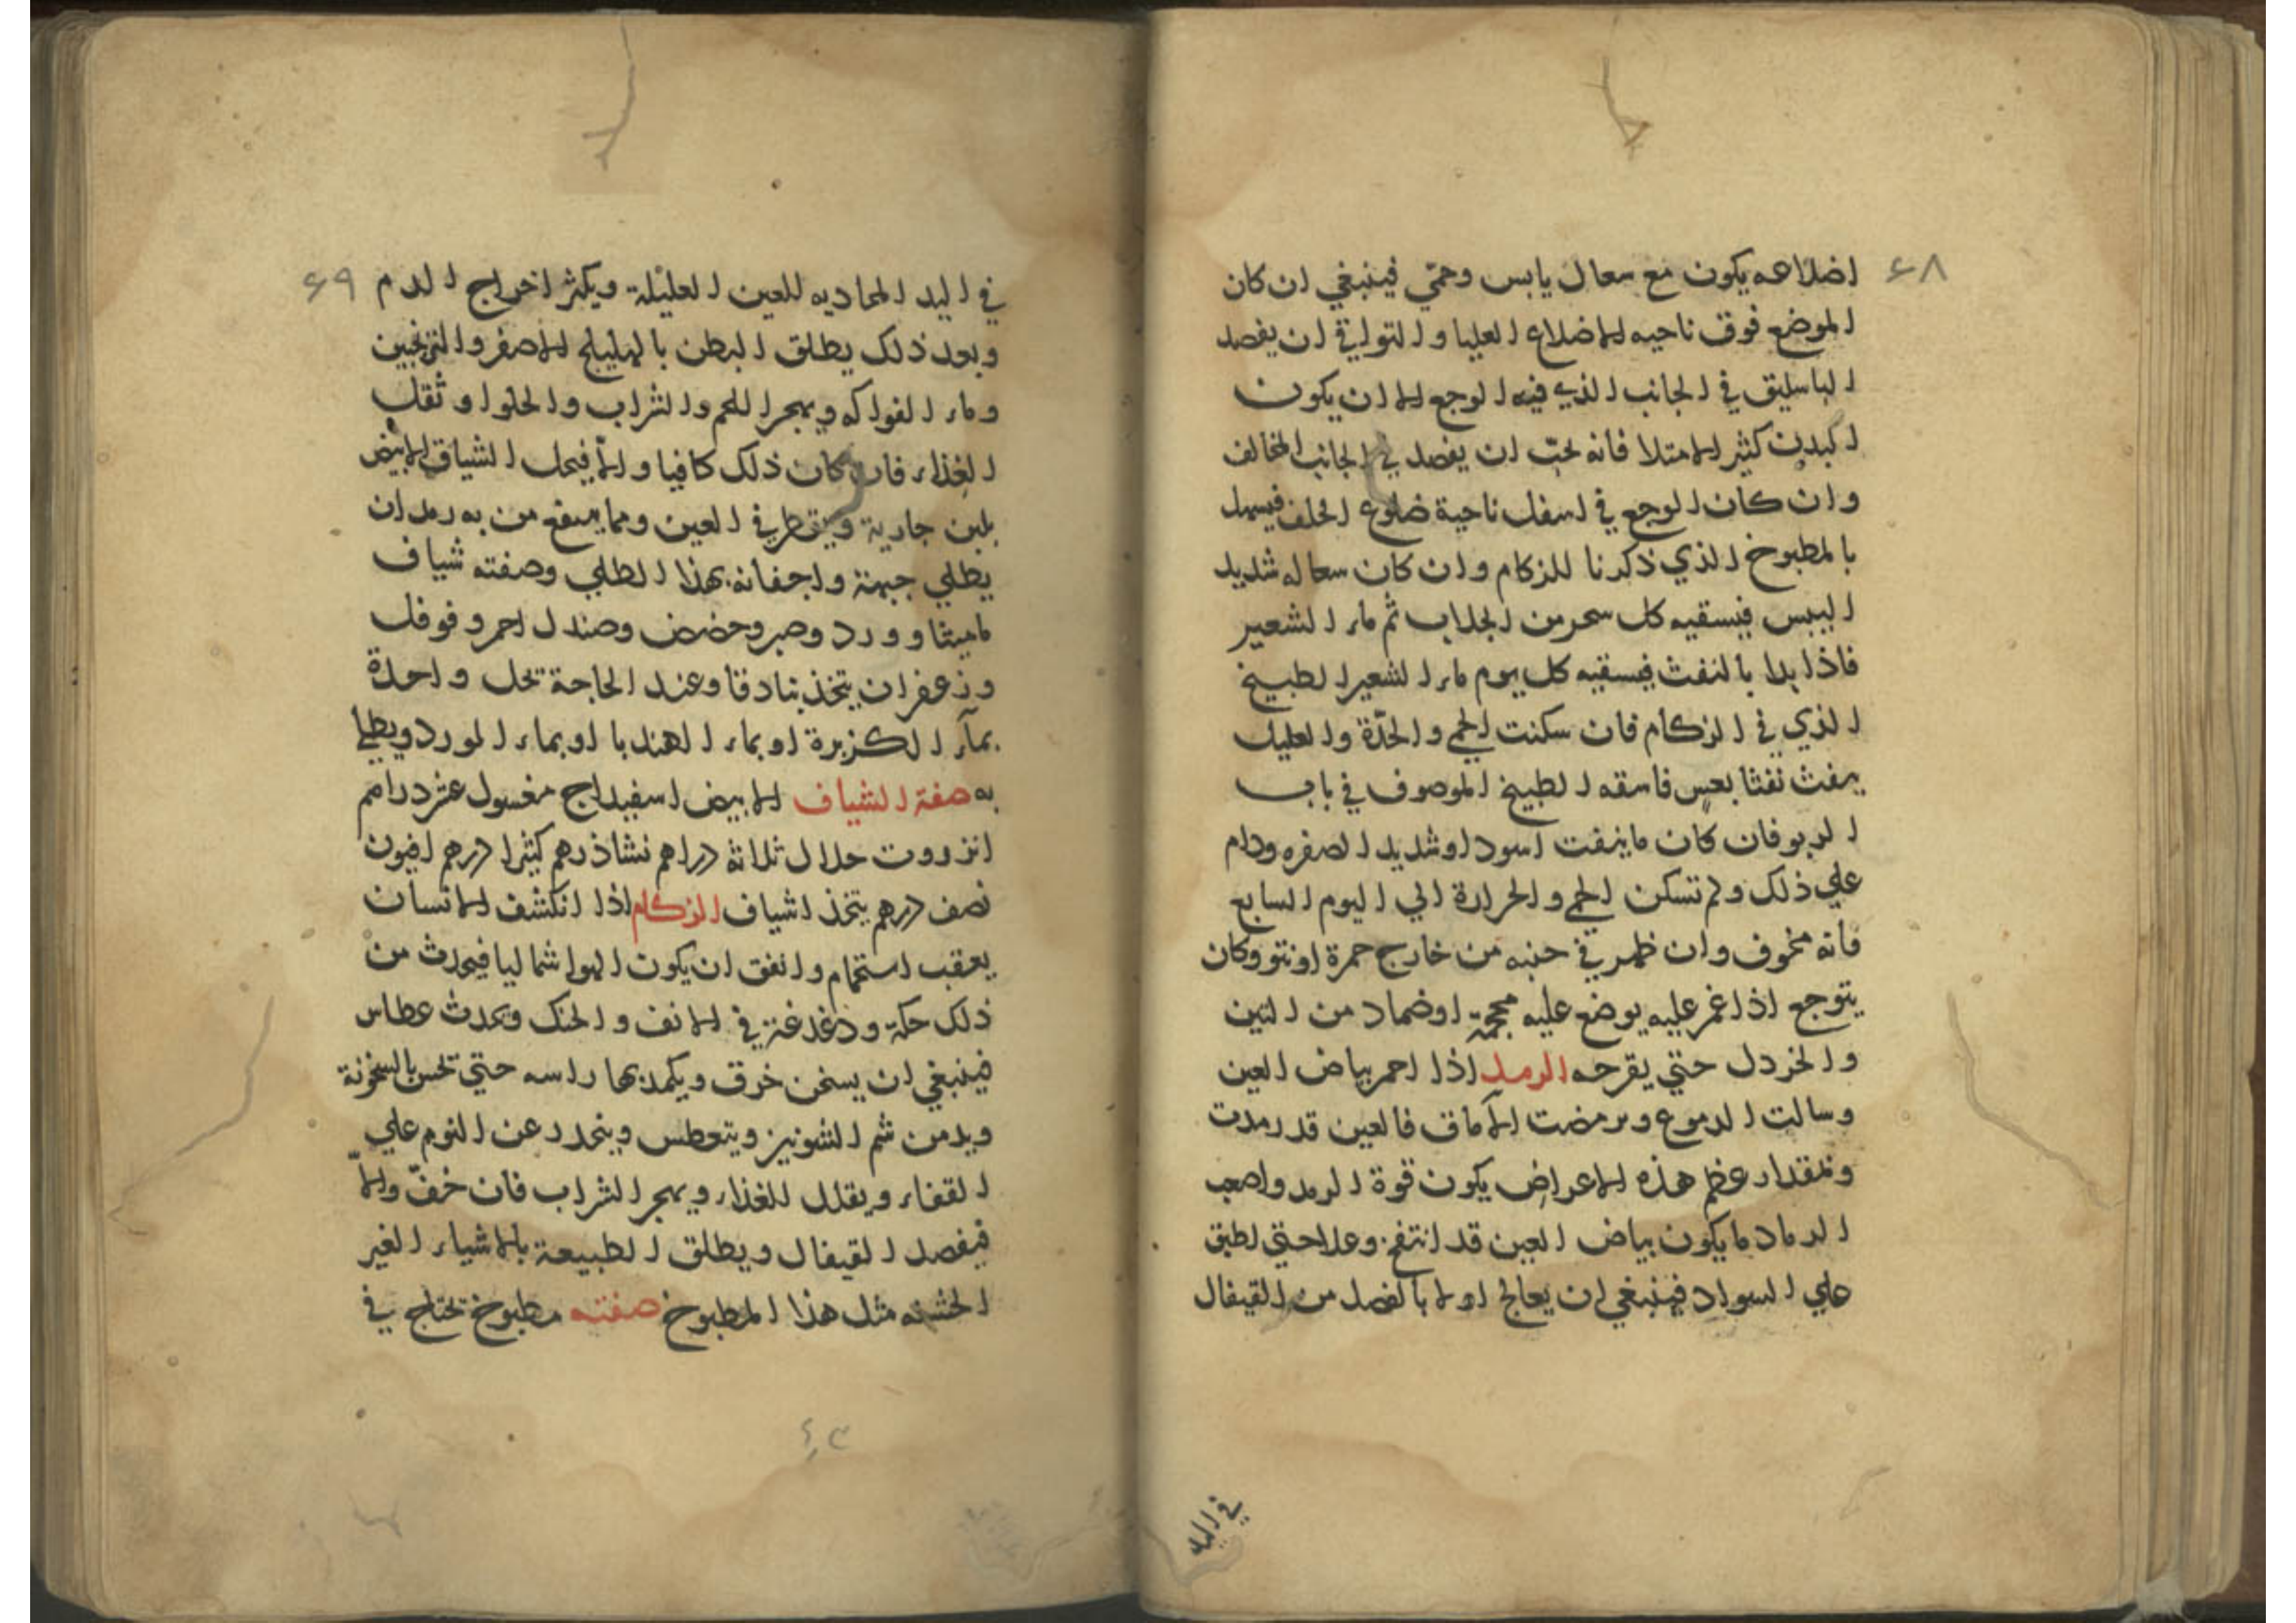 ۶۸
اضلاعه يكون مع سعال يابس وحمّي فينبغي ان كان
الموضع فوق ناحيه الاضلاع العليا والتواقي ان يفصد
الباسليق في الجانب الذي فيه الوجع الا ان يكون
البدن كثير الامتلا فانه يحبّ ان يفصد في الجانب المخالف
وان كان الوجع في اسفل ناحية ضلوع الخلف فيسهل
بالمطبوخ الذي ذكرنا للزكام وان كان سعاله شديد
اليبس فيسقيه كل سحر من الجلاب ثم ماء الشعير
فاذا بدا بالنفث فيسقيه كل يوم ماء الشعير الطبيخ
الذي في الزكام فان سكنت الحمي والحدّة والعليل
ينفث نفثا بعسر فاسقه الطبيخ الموصوف في باب
الربو فان كان ما ينفث اسود او شديد الصفره ودام
علي ذلك ولم تسكن الحمي والحرارة الي اليوم السابع
فانه مخوف وان ظهر في جنبه من خارج حمرة او نتو وكان
يتوجع اذا غمز عليه يوضع عليه محجمة اوضماد من التين
والخردل حتي يقرحه الرمد اذا احمر بياض العين
وسالت الدموع ورمضت الآماق فالعين قد رمدت
وبمقدار عظم هذه الاعراض يكون قوة الرمد واصعب
الرماد ما يكون بياض العين قد انتفخ وعلا حتي لطبق
علي السواد فينبغي ان يعالج اولا بالفصد من القيفال
في اليد
۶۹
في اليد المحاديه للعين العليلة ويكثر اخراج الدم
وبعد ذلك يطلق البطن بالهليلج الاصفر والترنجبين
وماء الفواكه ويهجر اللحم والشراب والحلوا وثقل
الغذاء فان كان ذلك كافيا والاّ فيحل الشياق الابيض
بلبن جارية ويقطر في العين ومما ينفع من به رمد ان
يطلي جبهتة واجفانه بهذا الطلي وصفته شياف
ماميثا وورد وصبر وحضض وصندل احمر وفوفل
وزعفران يتخذ بنادقا وعند الحاجة تحل واحدة
بمآء الكزبرة او بماء الهندبا او بماء المورد ويطلي
به صفة الشياف الابيض اسفيداج مغسول عشر دراهم
انزروت حلال ثلاثة دراهم نشا درهم كثيرا درهم افيون
نصف درهم يتخذ اشياف الزكام اذا انكشف الانسان
بعقب استحمام واتفق ان يكون الهوا شماليا فيحدث من
ذلك حكة ودغدغة في الانف والحنك ويحدث عطاس
فينبغي ان يسخن خرق ويكمد بها راسه حتي تحس بالسخونة
ويدمن شم الشونيز ويتعطس وينحدر عن النوم علي
القفاء ويقلل للغذاء ويهجر الشراب فان خفّ والاّ
فيفصد القيفال ويطلق الطبيعة بالاشياء الغير
الخشنه مثل هذا المطبوخ صفته مطبوخ تحتاج في